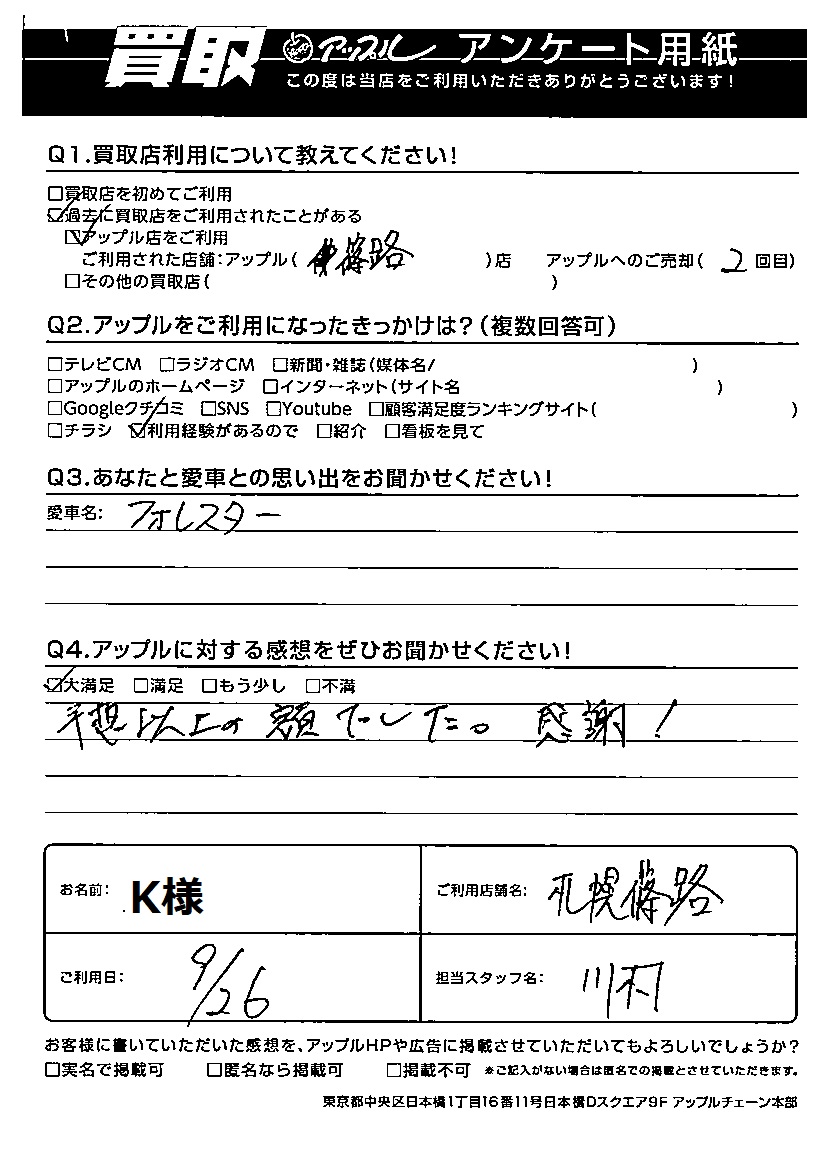 買取 アップル アンケート用紙
この度は当店をご利用いただきありがとうございます!
Q1.買取店利用について教えてください!
□買取店を初めてご利用
☑過去に買取店をご利用されたことがある
☑アップル店をご利用
ご利用された店舗:アップル( 篠路 )店 アップルへのご売却( 2 回目)
□その他の買取店( )
Q2.アップルをご利用になったきっかけは?(複数回答可)
□テレビCM □ラジオCM □新聞・雑誌(媒体名/ )
□アップルのホームページ □インターネット(サイト名 )
□Googleクチコミ □SNS □Youtube □顧客満足度ランキングサイト( )
□チラシ ☑利用経験があるので □紹介 □看板を見て
Q3.あなたと愛車との思い出をお聞かせください!
愛車名: フォレスター
Q4.アップルに対する感想をぜひお聞かせください!
☑大満足 □満足 □もう少し □不満
予想以上の額でした。感謝!
お名前: K様 ご利用店舗名: 札幌篠路
ご利用日: 9/26 担当スタッフ名: 川村
お客様に書いていただいた感想を、アップルHPや広告に掲載させていただいてもよろしいでしょうか?
□実名で掲載可 □匿名なら掲載可 □掲載不可 ※ご記入がない場合は匿名での掲載とさせていただきます。
東京都中央区日本橋1丁目16番11号日本橋Dスクエア9F アップルチェーン本部